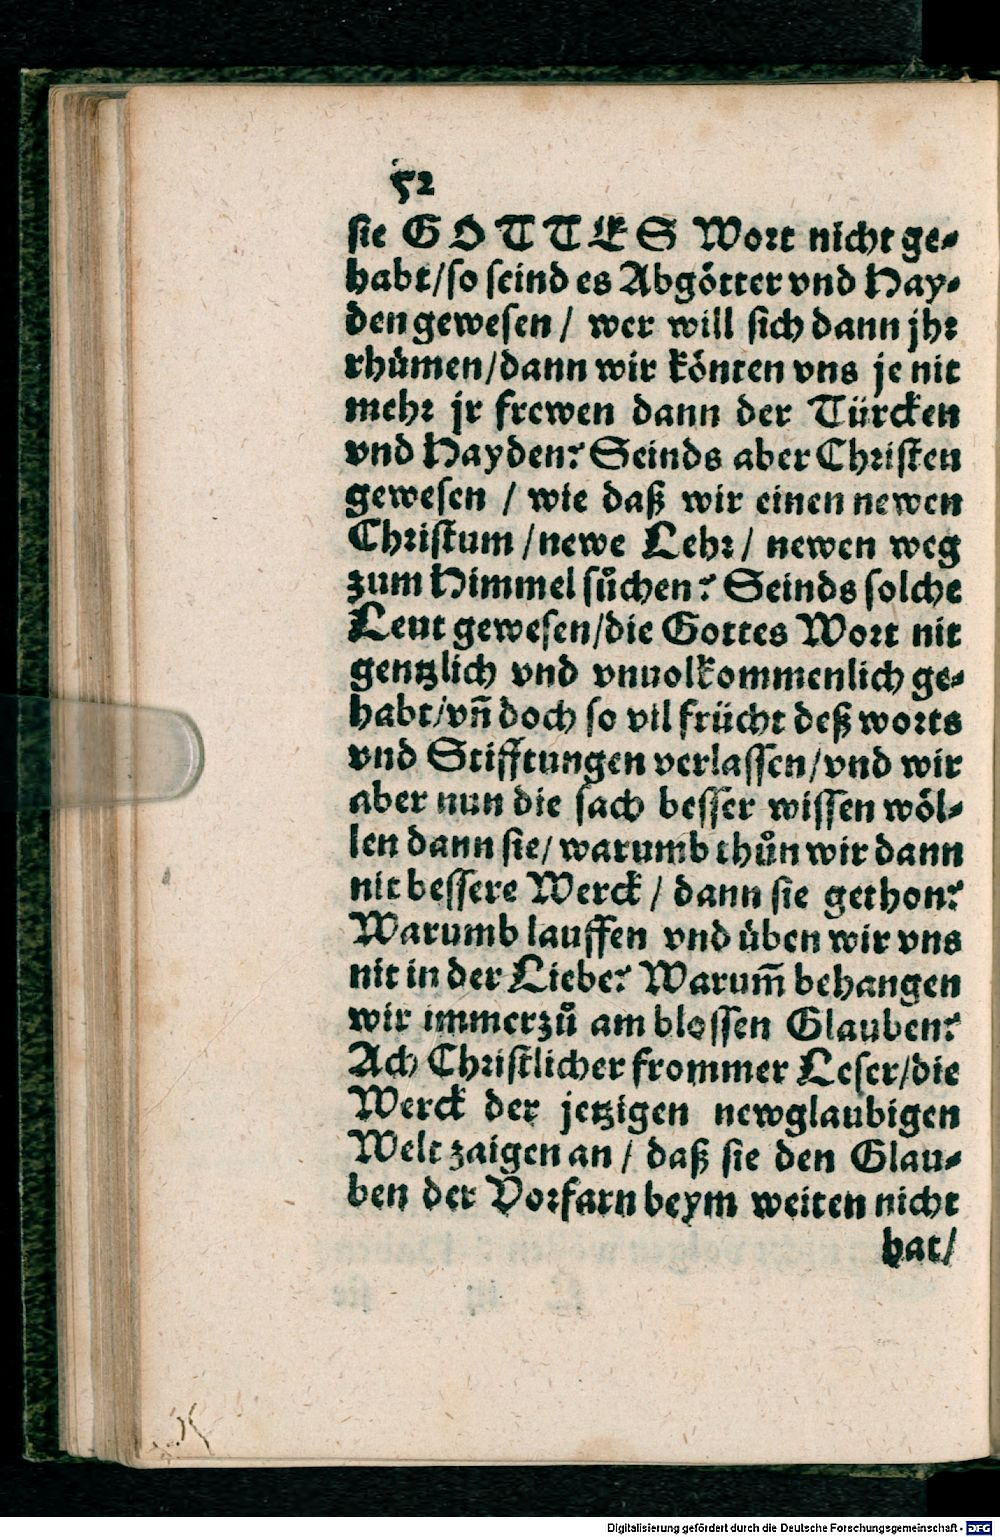 52
sie GOTTES Wort nicht ge-
habt/so seind es Abgötter vnd Hay-
den gewesen / wer will sich dann jhr
rhůmen/dann wir könten vns je nit
mehr jr frewen dann der Türcken
vnd Hayden? Seinds aber Christen
gewesen / wie daß wir einen newen
Christum /newe Lehr/ newen weg
zum Himmel sůchen? Seinds solche
Leut gewesen/die Gottes Wort nit
gentzlich vnd vnuolkommenlich ge-
habt/vñ doch so vil frücht deß worts
vnd Stifftungen verlassen/vnd wir
aber nun die sach besser wissen wöl-
len dann sie/ warumb thůn wir dann
nit bessere Werck / dann sie gethon?
Warumb lauffen vnd üben wir vns
nit in der Liebe? Warum̃ behangen
wir immerzů am blossen Glauben?
Ach Christlicher frommer Leser/die
Werck der jetzigen newglaubigen
Welt zaigen an / daß sie den Glau-
ben der Vorfarn beym weiten nicht
hat/
Digitalisierung gefördert durch die Deutsche Forschungsgemeinschaft - DFG